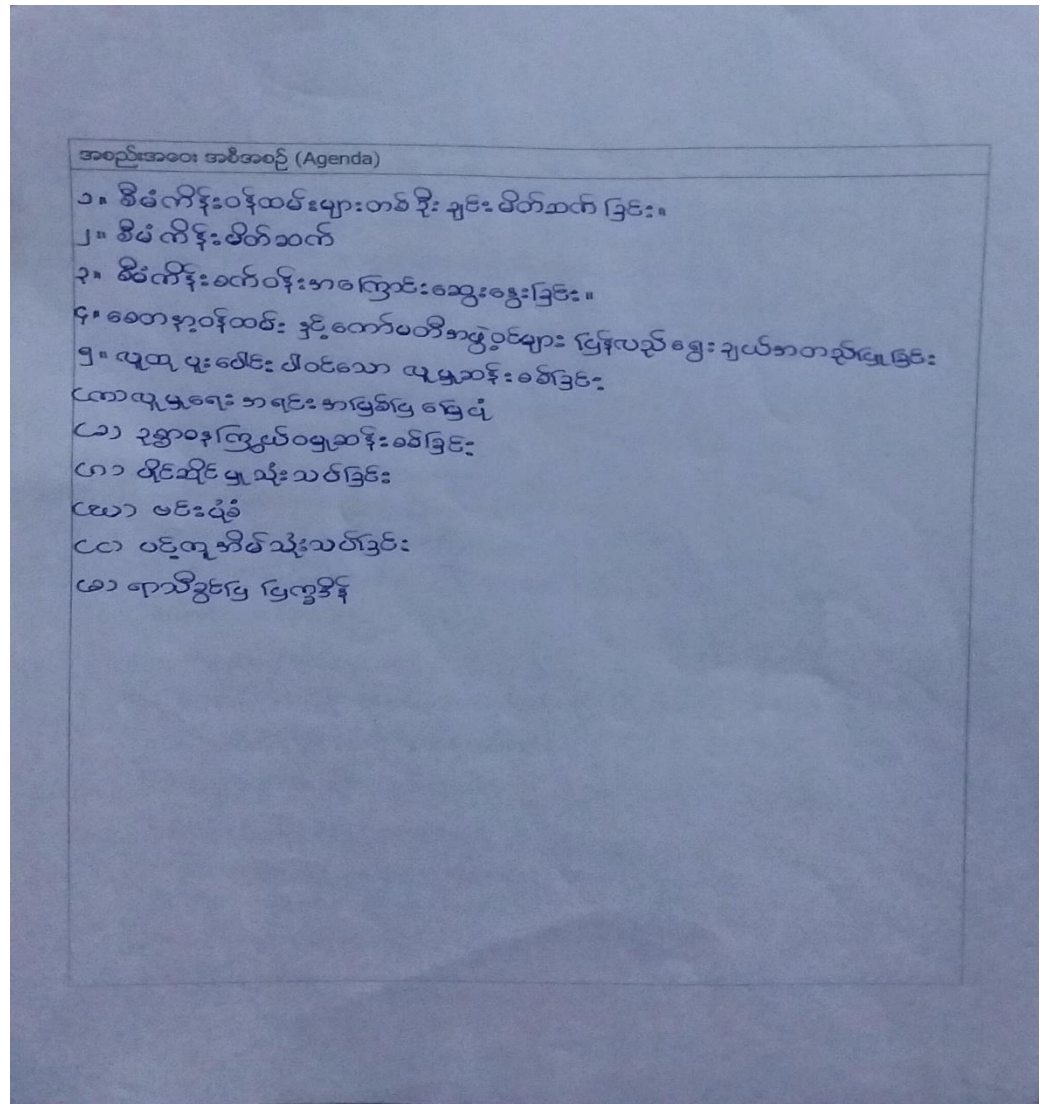 အစည်းအဝေး အစီအစဉ် (Agenda)
၁။ စီမံကိန်းဝန်ထမ်းများတစ်ဦးချင်းမိတ်ဆက်ခြင်း။
၂။ စီမံကိန်းမိတ်ဆက်
၃။ စီမံကိန်းစက်ဝန်းအကြောင်းဆွေးနွေးခြင်း။
၄။ စေတနာ့ဝန်ထမ်း နှင့် ကော်မတီအဖွဲ့ဝင်များ ပြန်လည်ရွေးချယ်အတည်ပြုခြင်း
၅။ လူထု ပူးပေါင်း ပါဝင်သော လူမှုဆန်းစစ်ခြင်း
(က) လူမှုရေး အရင်းအမြစ်ပြ မြေပုံ
(ခ) ဥစ္စာဓနကြွယ်ဝမှုဆန်းစစ်ခြင်း
(ဂ) ပိုင်ဆိုင်မှုသုံးသပ်ခြင်း
(ဃ) ဗင်းပုံစံ
(င) ပင့်ကူအိမ်သုံးသပ်ခြင်း
(စ) ရာသီခွင်ပြ ပြက္ခဒိန်